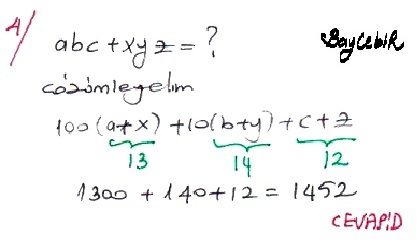 A/
abc + xyz = ?
BayCebir
çözümleyelim
100(a+x) + 10(b+y) + c + z
13 14 12
1300 + 140 + 12 = 1452
CEVAP:D